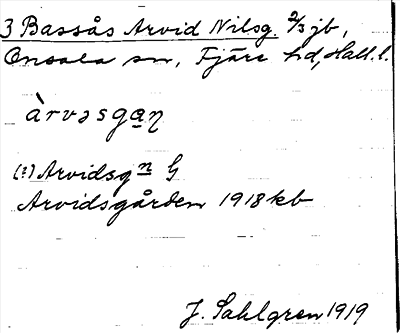 3 Bassås Arvid Nilsg. 2/3 jb,
Onsala sn, Fjäre hd, Hall. l.
àrvəsgan
(:) Arvidsgn G
Arvidsgården 1918 kb
J. Sahlgren 1919